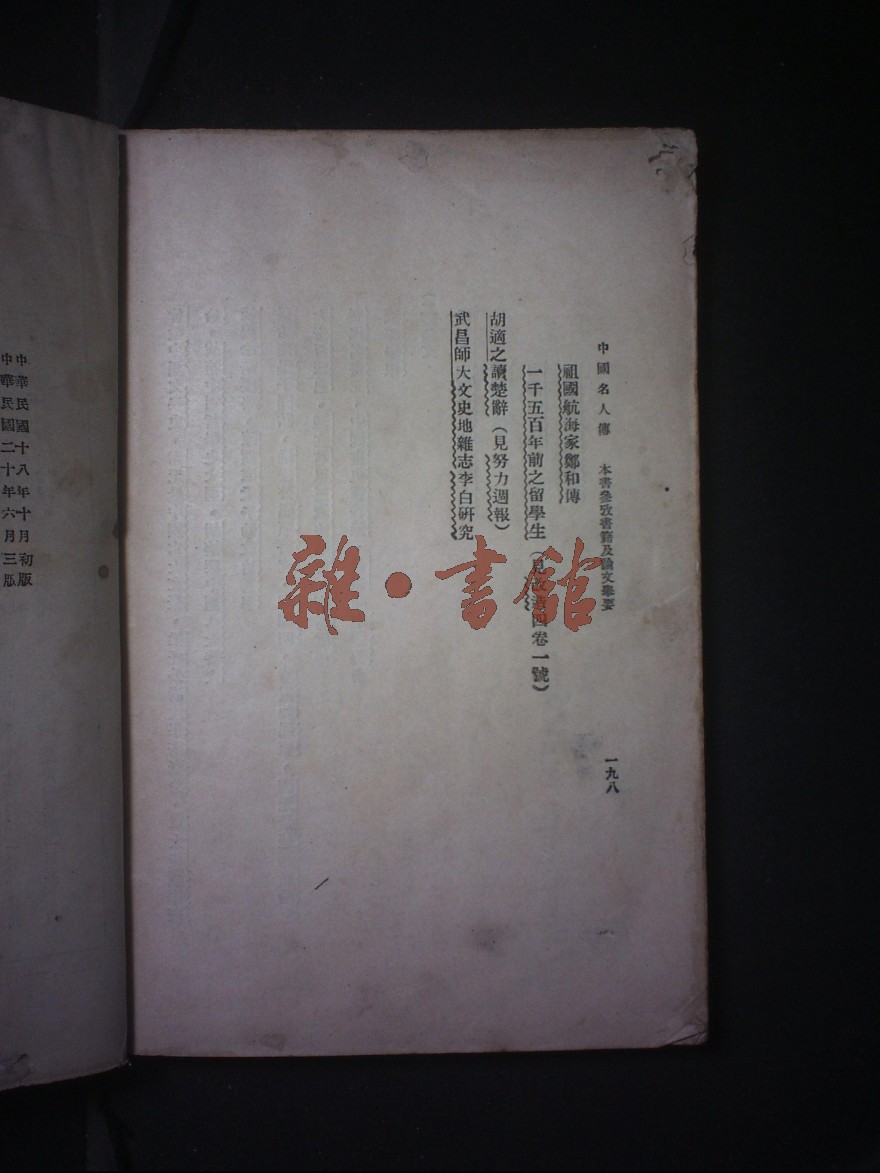 中國名人傳 本書參攷書籍及論文舉要 一九八
祖國航海家鄭和傳
一千五百年前之留學生（見改造四卷一號）
胡適之讀楚辭（見努力週報）
武昌師大文史地雜志李白研究
雜·書館
中華民國十八年十月初版
中華民國二十年六月三版